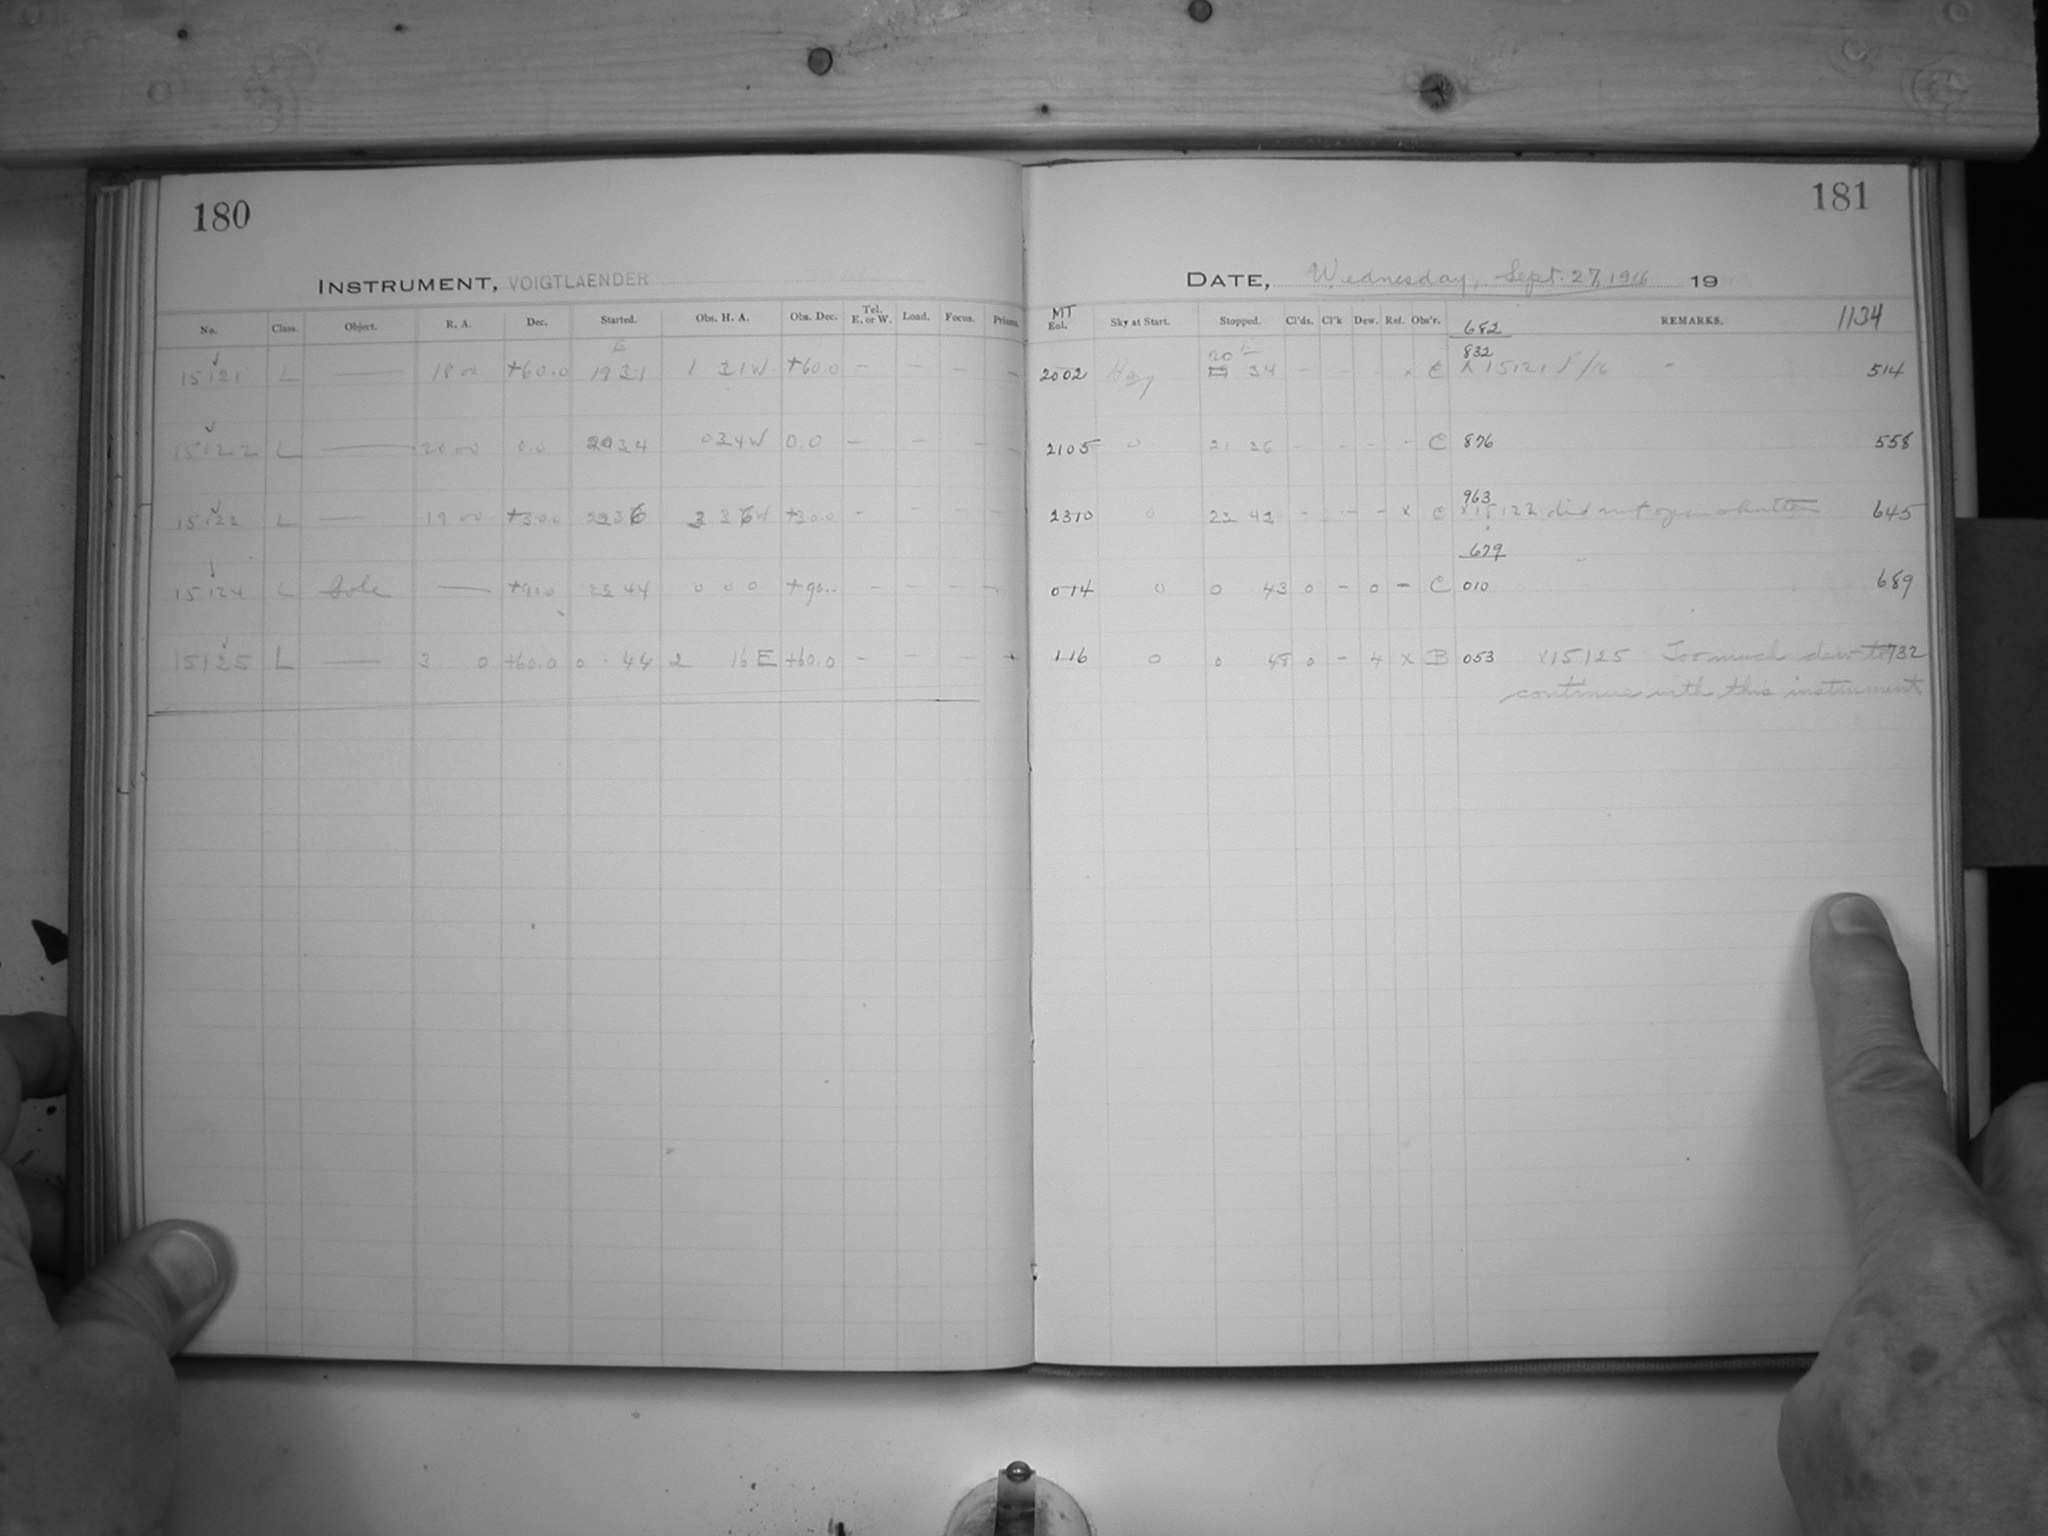 180
181
INSTRUMENT, VOIGTLAENDER
DATE, Wednesday, Sept. 27, 1916 19
No. Class. Object. R. A. Dec. Started. Obs. H. A. Obs. Dec. Tel. E. or W. Load. Focus. Prisms. MT Eql. Sky at Start. Stopped. Cl'ds. Cl'k Dew. Ref. Obs'r. REMARKS. 1134
682
E 20 E 832
15121 L — 18 00 +60.0 19 31 1 31 W +60.0 — — — — 2002 Hazy 34 - - - x C X 15121 f/16 514
15122 L — 20 00 0.0 2034 0 34 W 0.0 — — — — 2105 0 21 36 - - - - C 876 558
963
15123 L — 19 00 +30.0 2236 3 36 W +30.0 — — — — 2310 0 22 42 - - - x C X15122 did not open shutter 645
679
15124 L Pole — +90.0 22 44 0 0 0 +90.0 — — — — 014 0 0 43 0 - 0 - C 010 689
15125 L — 3 0 +60.0 0 44 2 16 E +60.0 — — — — 116 0 0 48 0 - 4 X B 053 X15125 Too much dew to 732
continue with this instrument